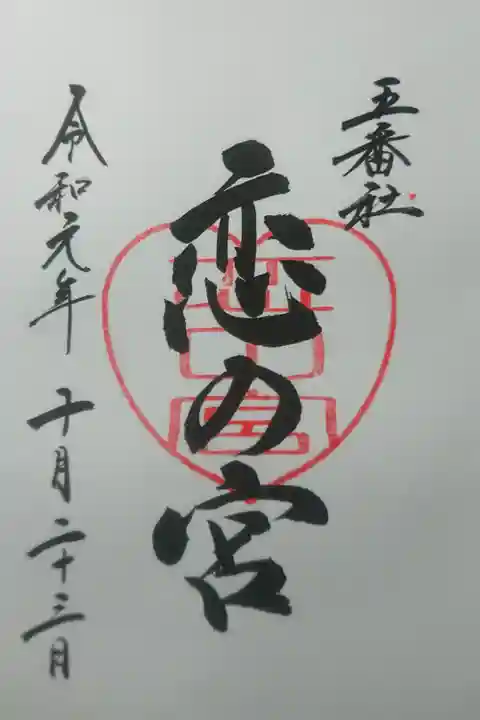 五番社
恋の宮
令和元年 十月二十三日